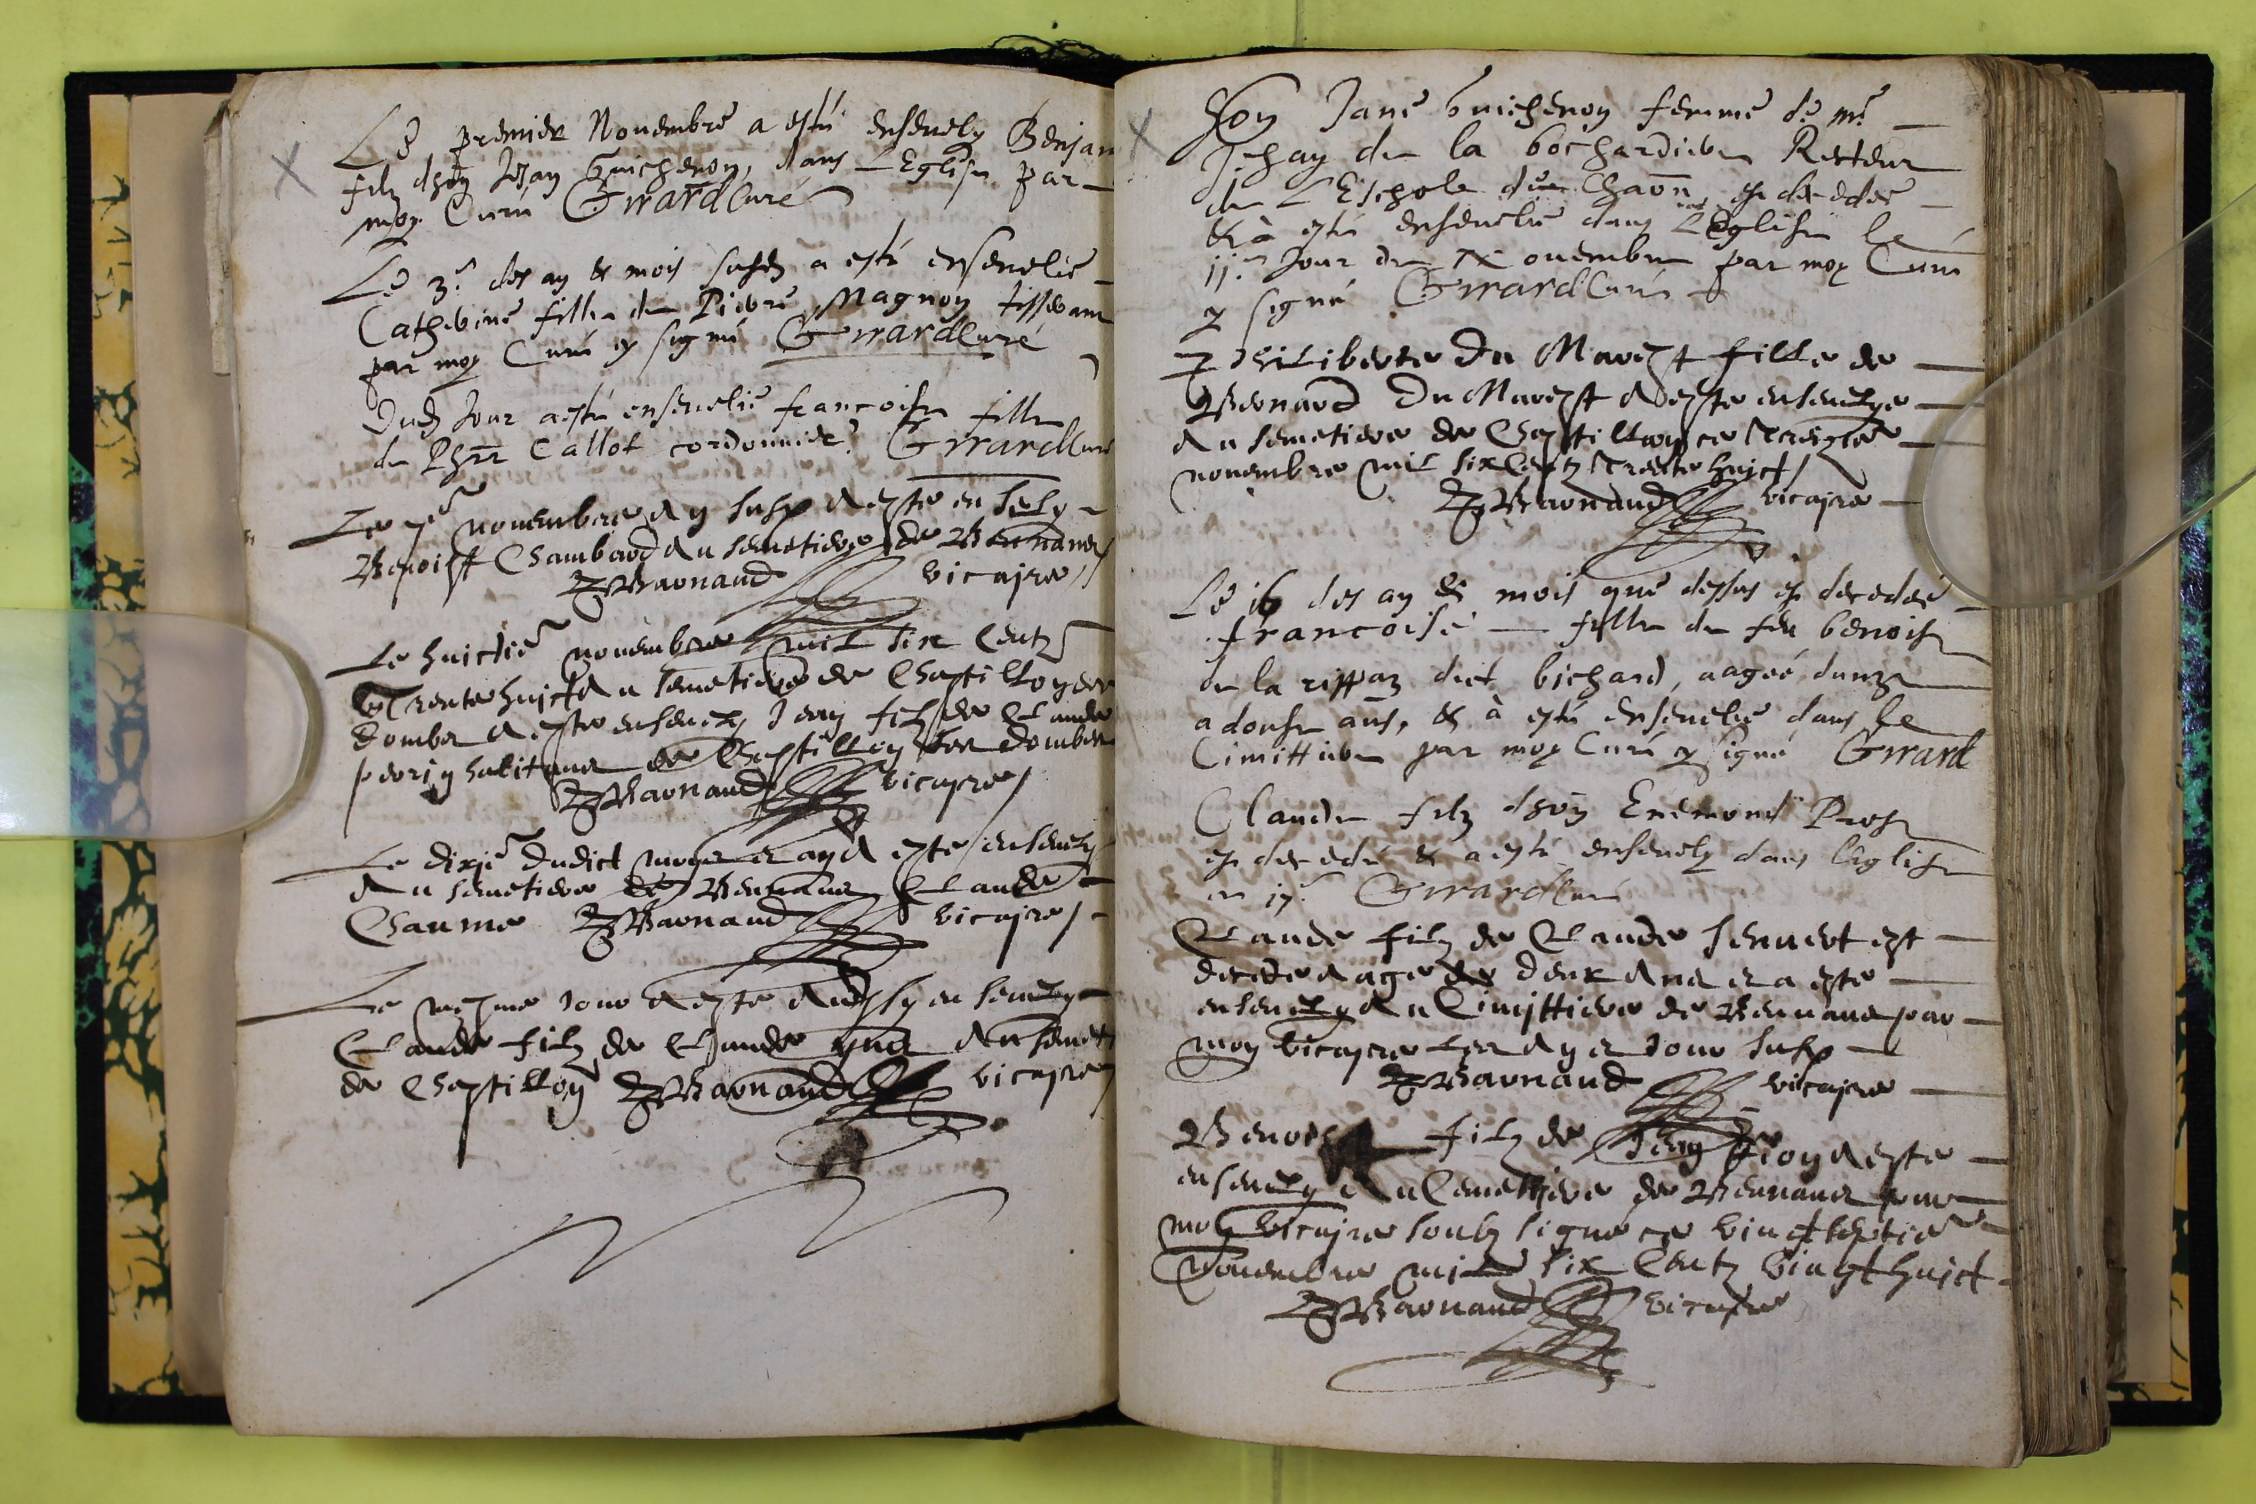 Le premier Novembre a esté ensevely Benjam
filz dhon Jehan Guichenon, dans L'Eglise par
moy Curé Girard Curé
Le 3e des an & mois susdz a esté ensevelie
Catherine fille de Pierre Magnon tisserant
par moy Curé et signé Girard Curé
Dudz Jour a esté ensevelie francoise fille
de Phrr Callot cordonnier. Girard Curé
Le 7e novembre an susd a este ensely
Benoist Chambard au semetiere de Bennans
Barnaud vicayre
Le huictie novembre mil six Centz
Trente huict au semetiere de Chastillon les
dombes a este ensevely Jean filz de Claude
perrin habitant de Chastillon les dombes
Barnaud vicayre
Le dixie dudict moys et an a este ensevely
au semetiere de Bennans Claude
Chaume Barnaud vicayre
Le mesme iour a este aussy ensevely
Claude filz de Claude au semet
de Chastillon Barnaud vicayre
hon Jane Guichenon femme de me
Jehan de la bochardiere Recteur
de L'Eschole du Chaon est decedee
& à esté ensevelie dans L'Eglise le
11e Jour de Novembre par moy Curé
& signé Girard Curé
Philiberte Du Marest fille de
Bernard Du Marest a este ensevelye
au semetiere de Chastillon ce treizie
novembre mil six Centz trente huict
Barnaud vicayre
Le 16 des an & mois que dessus est decedée
francoise fille de feu benoist
de la rippaz dict bichard, aagée dunze
a douse ans, & à esté ensevelie dans le
Cimittiere par moy Curé & signé Girard
Claude filz dhon Enemond Prost
est decedé & a esté ensevely dans l'Eglise
ce 17e Girard Curé
Claude filz de Claude Iennert est
decede aage de deux ans et a este
ensevely au Cimittiere de Bennans par
moy vicayre Les an et iour susd
Barnaud vicayre
Benoist filz de Jean pion a este
ensevely au Cemettiere de Bennans par
moy vicayre soubz signe ce vingtseptie
Novembre mil six Centz vingt huict
Barnaud vicayre